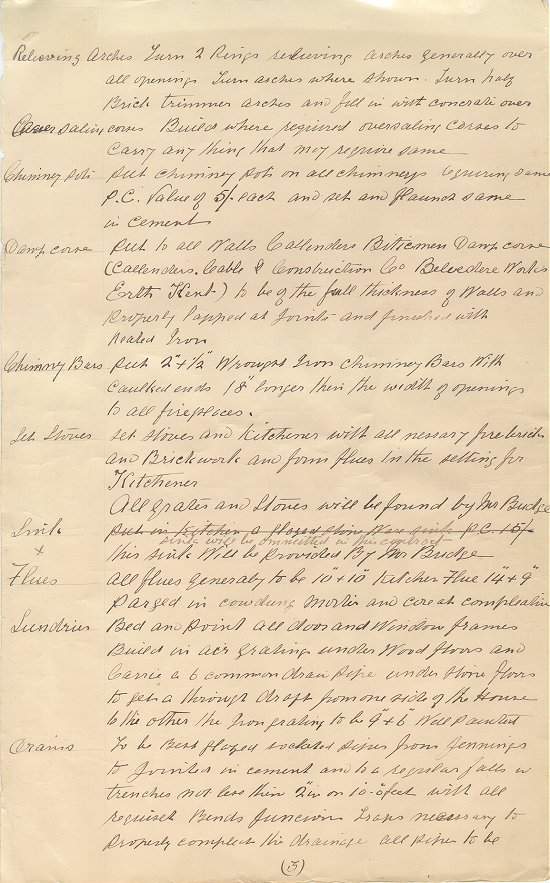 Relieving Arches Turn 2 Rings relieving arches generally over
all openings Turn arches where shown. Turn half
Brick trimmer arches and fill in with concrate over
Oversaling corses Build where required oversaling Corses to
Carry any thing that may require same
Chimney pots Put chimney pots on all chimneys requiring same
P.C. Value of 5/- each and set and flaunch same
in cement
Damp corse Put to all Walls Callenders Bitumen Damp corse
(Callenders Cable & Construction Co Belvedere Works
Erith Kent-) to be of the full thickness of Walls and
properly lapped at Joints and finished with
heated Iron
Chimney Bars Put 2" + 1/2" Wrought Iron Chimney Bars With
Caulked ends 18" longer then the width of openings
to all fireplaces.
Set Stoves Set stoves and Kitchener with all nessary fire bricks
and Brickwork and form flues In the setting for
Kitchener
All grates and Stoves will be found by Mr Budge
Sink Put in Kitchin a Glazed Stone Ware sink P.C. 15/-
sink will be ommitted in this contract
+ this sink Will be provided By Mr Budge
Flues all flues generaly to be 10" + 10" Kitchen Flue 14" + 9"
Parged in cowdung Morter and core at compleation
Sundries Bed and Point all doors and Window frames
Build in air gratings under Wood floors and
Carrie a 6 common drain Pipe under stone floors
to get a through draft from one side of the House
to the other the Iron grating to be 9" + 6 Well Painted
Drains To be Best glazed socketed pipes from Jennings
to Jointed in cement and to a regular falls in
trenches not less then 2 in on 10-0 feet with all
requiset Bends Juncions Traps necessary to
Properly compleat the drainage all pipes to be
(3)